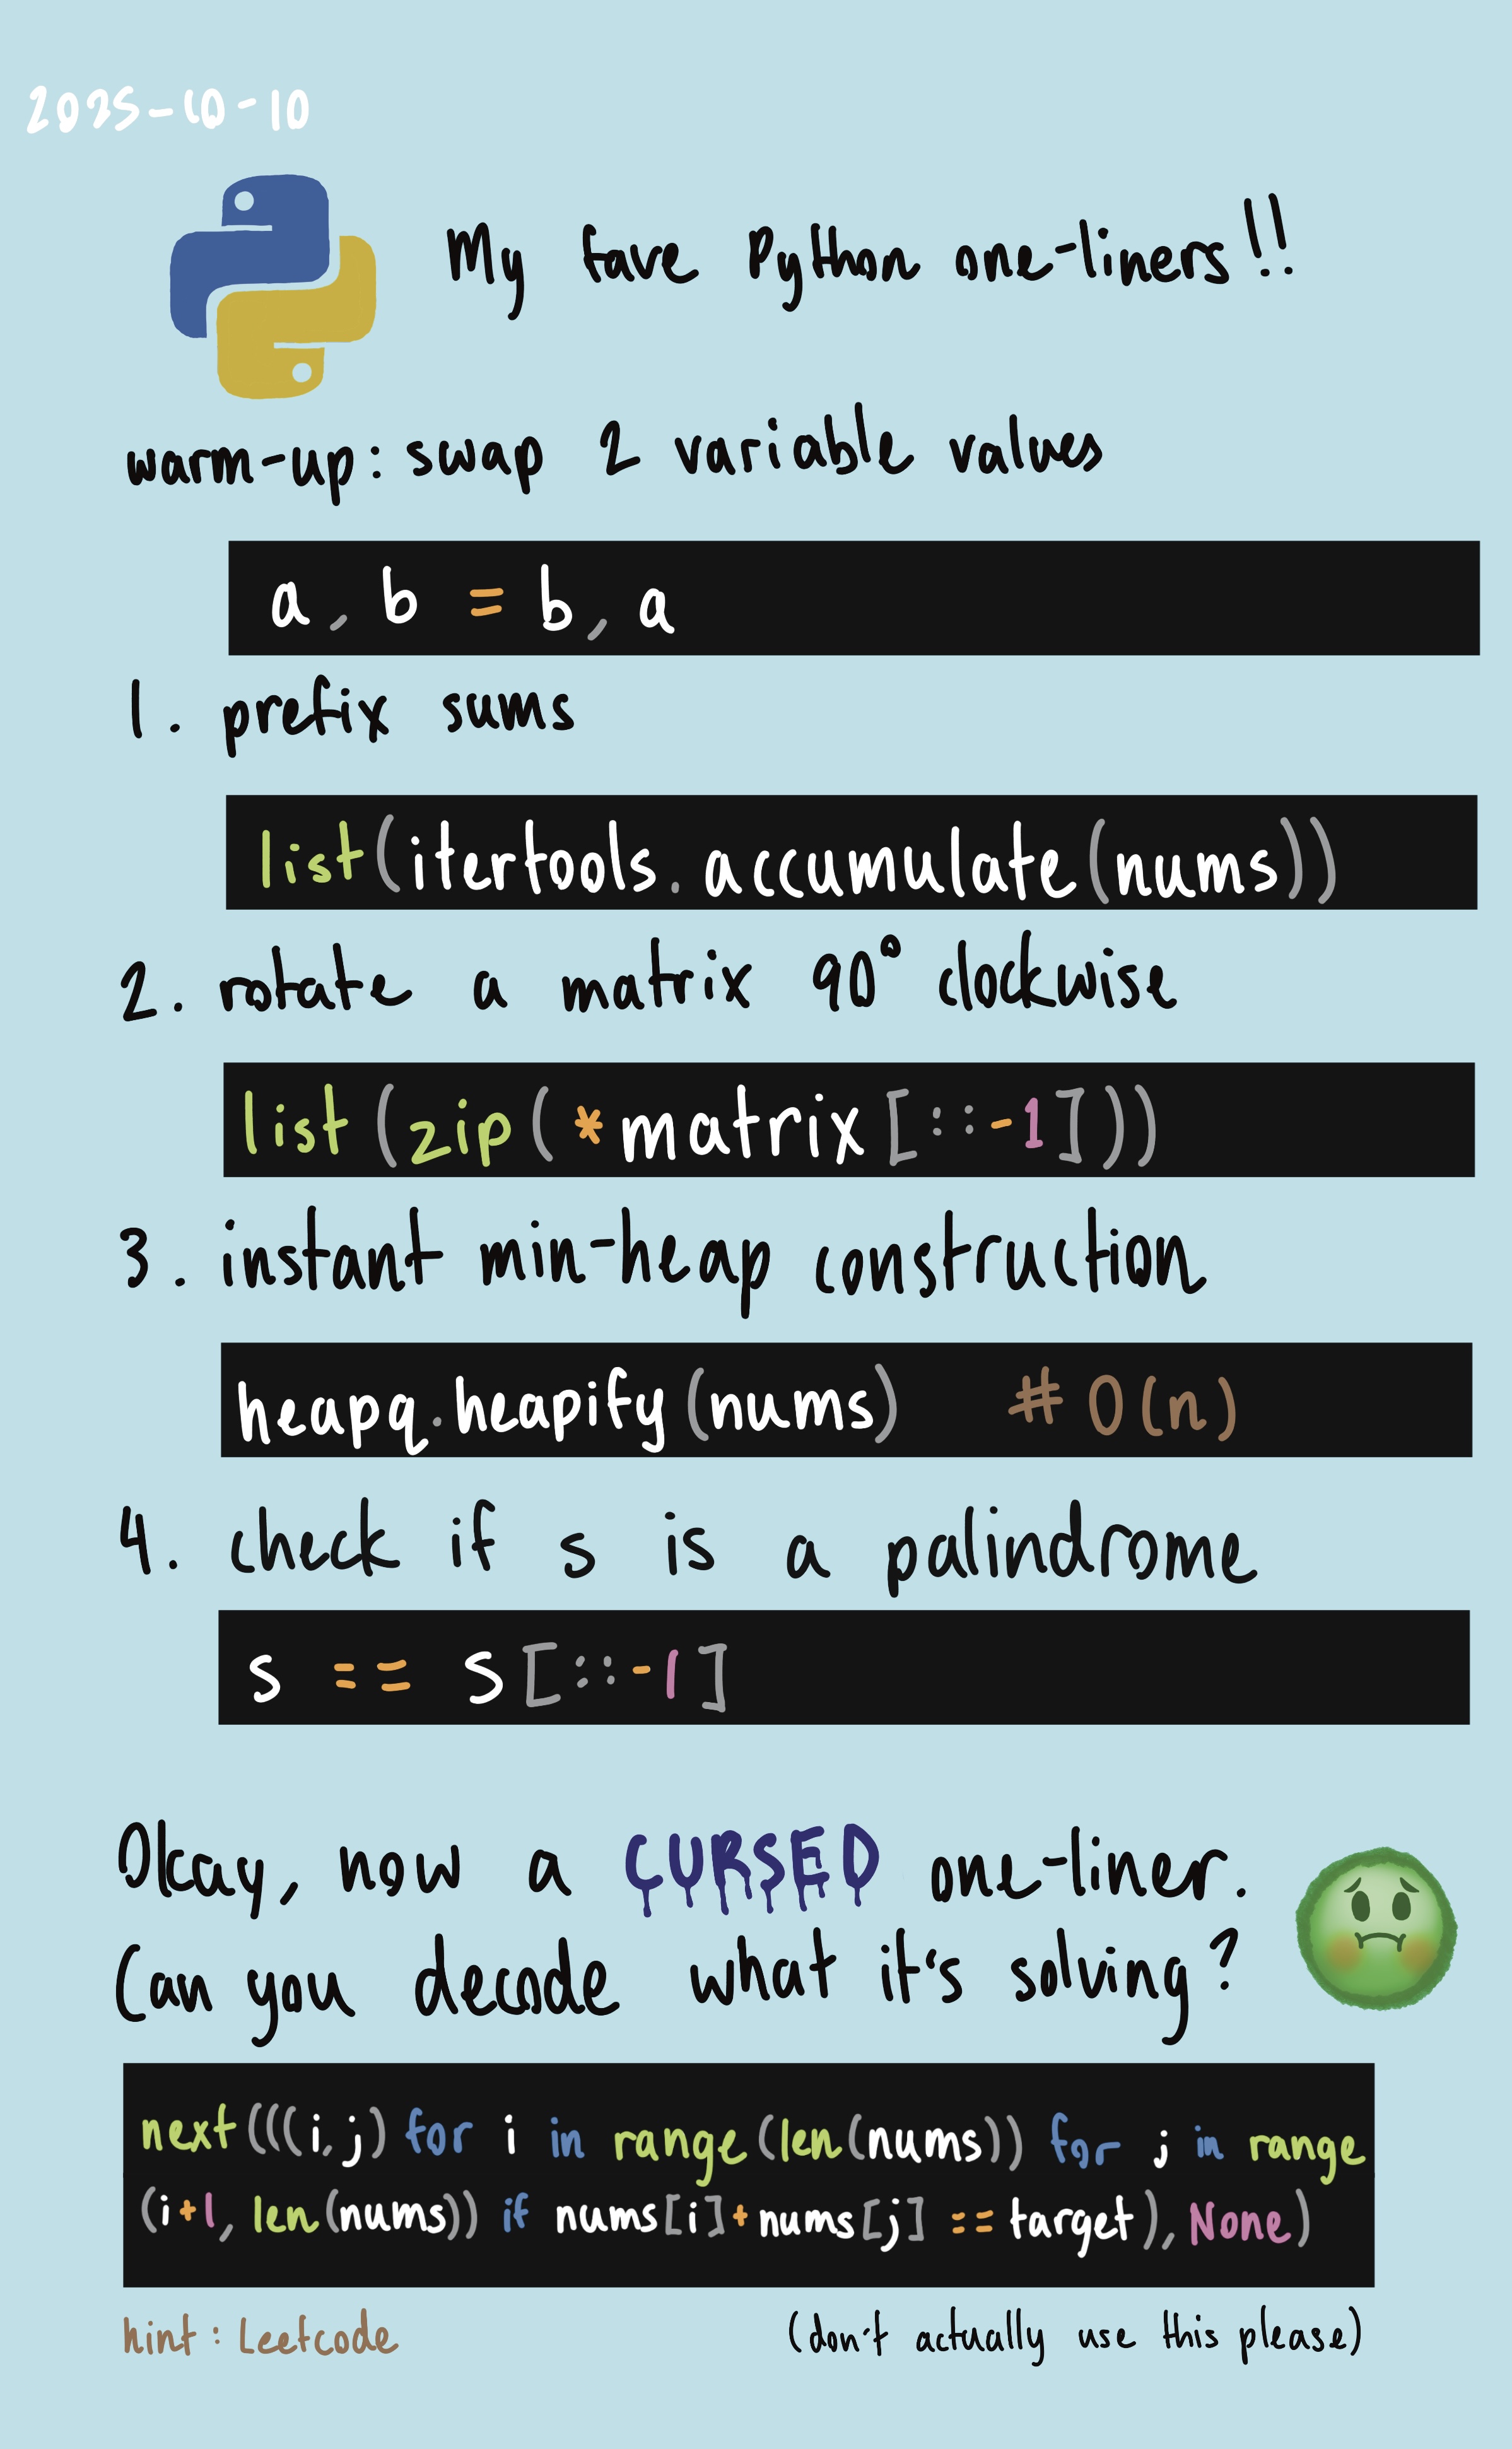 2025-10-10
My fave Python one-liners!!
warm-up: swap 2 variable values
a, b = b, a
1. prefix sums
list(itertools.accumulate(nums))
2. rotate a matrix 90° clockwise
list(zip(*matrix[::-1]))
3. instant min-heap construction
heapq.heapify(nums) # O(n)
4. check if s is a palindrome
s == s[::-1]
Okay, now a CURSED one-liner.
Can you decode what it's solving?
next(((i,j) for i in range(len(nums)) for j in range
(i+1, len(nums)) if nums[i]+nums[j] == target), None)
hint: Leetcode
(don't actually use this please)